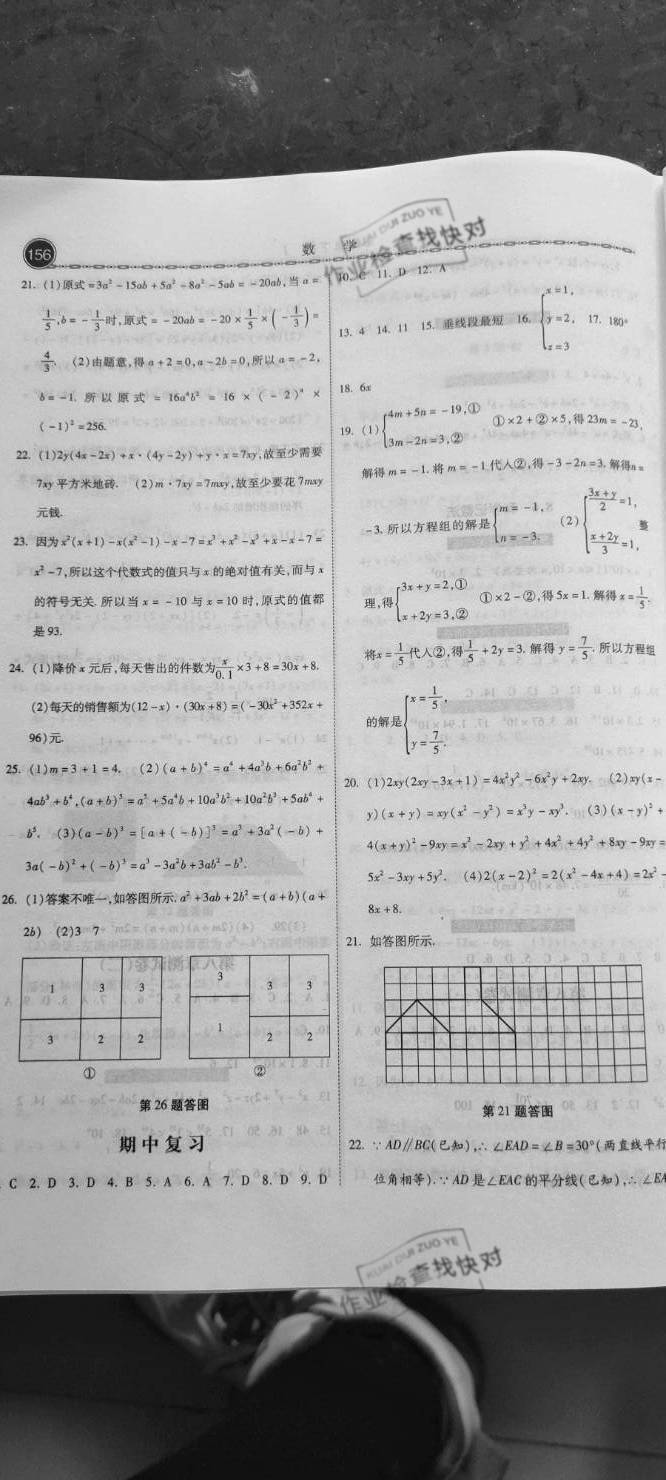 156
数 学
KUAI DUI ZUO YE
作业检查找快对
21. (1)原式=3a²-15ab+5a²-8a²-5ab=-20ab,当a=
1/5,b=-1/3时,原式=-20ab=-20×1/5×(-1/3)=
4/3. (2)由题意,得a+2=0,a-2b=0,所以a=-2,
b=-1.所以原式=16a⁴b²=16×(-2)⁴×
(-1)²=256.
22. (1)2y(4x-2x)+x·(4y-2y)+y·x=7xy,故至少需要
7xy平方米地砖. (2)m·7xy=7mxy,故至少要花7mxy
元钱.
23. 因为x²(x+1)-x(x²-1)-x-7=x³+x²-x³+x-x-7=
x²-7,所以这个代数式的值只与x的绝对值有关,而与x
的符号无关.所以当x=-10与x=10时,原式的值都
是93.
24. (1)降价x元后,每天售出的件数为x/0.1×3+8=30x+8.
(2)每天的销售额为(12-x)·(30x+8)=(-30x²+352x+
96)元.
25. (1)m=3+1=4. (2)(a+b)⁴=a⁴+4a³b+6a²b²+
4ab³+b⁴,(a+b)⁵=a⁵+5a⁴b+10a³b²+10a²b³+5ab⁴+
b⁵. (3)(a-b)³=[a+(-b)]³=a³+3a²(-b)+
3a(-b)²+(-b)³=a³-3a²b+3ab²-b³.
26. (1)答案不唯一,如答图所示.a²+3ab+2b²=(a+b)(a+
2b) (2)3 7
1 3 3
3 2 2
①
3 3 3
1 2 2
②
第26题答图
期中复习
C 2. D 3. D 4. B 5. A 6. A 7. D 8. D 9. D
10. C 11. D 12. A
13. 4 14. 11 15. 垂线段最短 16. {x=1, y=2, z=3 17. 180°
18. 6x
19. (1){4m+5n=-19,① 3m-2n=3,② ①×2+②×5,得23m=-23,
解得m=-1.将m=-1代入②,得-3-2n=3.解得n=
-3.所以方程组的解是{m=-1, n=-3. (2){(3x+y)/2=1, (x+2y)/3=1, 整
理,得{3x+y=2,① x+2y=3,② ①×2-②,得5x=1.解得x=1/5.
将x=1/5代人②,得1/5+2y=3.解得y=7/5.所以方程组
的解是{x=1/5, y=7/5.
20. (1)2xy(2xy-3x+1)=4x²y²-6x²y+2xy. (2)xy(x-
y)(x+y)=xy(x²-y²)=x³y-xy³. (3)(x-y)²+
4(x+y)²-9xy=x²-2xy+y²+4x²+4y²+8xy-9xy=
5x²-3xy+5y². (4)2(x-2)²=2(x²-4x+4)=2x²-
8x+8.
21. 如答图所示.
第21题答图
22. ∵AD∥BC(已知),∴∠EAD=∠B=30°(两直线平行
位角相等).∵AD是∠EAC的平分线(已知),∴∠EA
KUAI DUI ZUO YE
作业检查找快对